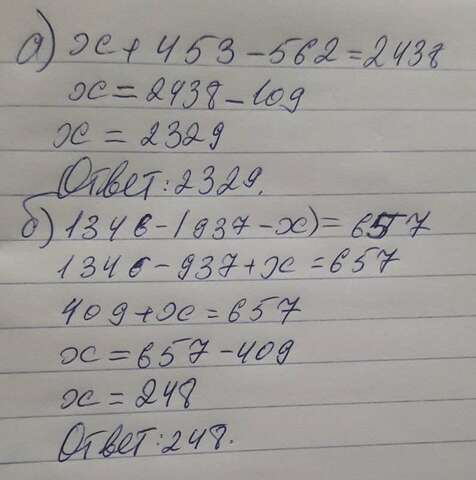 а) x + 453 - 562 = 2438
x = 2438 - 109
x = 2329
Ответ: 2329.
б) 1346 - (937 - x) = 657
1346 - 937 + x = 657
409 + x = 657
x = 657 - 409
x = 248
Ответ: 248.